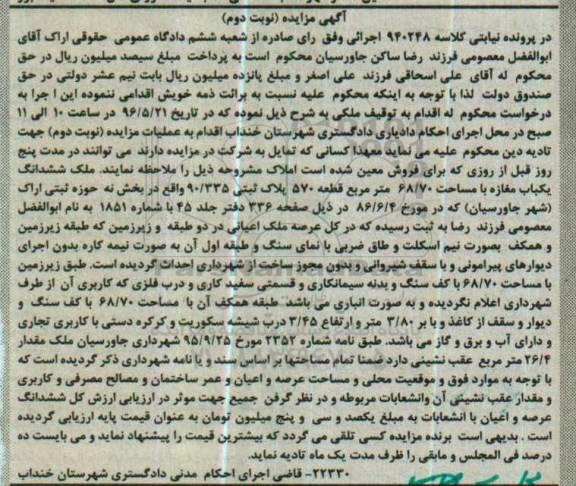 آگهی مزایده (نوبت دوم)
در پرونده نیابتی کلاسه ۹۴۰۲۴۸ اجرائی وفق رای صادره از شعبه ششم دادگاه عمومی حقوقی اراک آقای
ابوالفضل معصومی فرزند رضا ساکن جاورسیان محکوم است به پرداخت مبلغ سیصد میلیون ریال در حق
محکوم له آقای علی اسحاقی فرزند علی اصغر و مبلغ پانزده میلیون ریال بابت نیم عشر دولتی در حق
صندوق دولت لذا با توجه به اینکه محکوم علیه نسبت به برائت ذمه خویش اقدامی ننموده این ا جرا به
درخواست محکوم له اقدام به توقیف ملکی به شرح ذیل نموده که در تاریخ ۹۶/۵/۲۱ در ساعت ۱۰ الی ۱۱
صبح در محل اجرای احکام دادیاری دادگستری شهرستان خنداب اقدام به عملیات مزایده (نوبت دوم) جهت
تادیه دین محکوم علیه می نماید معهذا کسانی که تمایل به شرکت در مزایده دارند می توانند در مدت پنج
روز قبل از روزی که برای فروش معین شده است املاک مشروحه ذیل را ملاحظه نمایند. ملک ششدانگ
یکباب مغازه با مساحت ۶۸/۷۰ متر مربع قطعه ۵۷۰ پلاک ثبتی ۹۰/۳۳۵ واقع در بخش نه حوزه ثبتی اراک
(شهر جاورسیان) که در مورخ ۸۶/۶/۴ در ذیل صفحه ۳۳۶ دفتر جلد ۴۵ با شماره ۱۸۵۱ به نام ابوالفضل
معصومی فرزند رضا به ثبت رسیده که در کل عرصه ملک اعیانی در دو طبقه و زیرزمین که طبقه زیرزمین
و همکف بصورت نیم اسکلت و طاق ضربی با نمای سنگ و طبقه اول آن به صورت نیمه کاره بدون اجرای
دیوارهای پیرامونی و با سقف شیروانی و بدون مجوز ساخت از شهرداری احداث گردیده است. طبق زیرزمین
با مساحت ۶۸/۷۰ با کف سنگ و بدنه سیمانکاری و قسمتی سفید کاری و درب فلزی که کاربری آن از طرف
شهرداری اعلام نگردیده و به صورت انباری می باشد طبقه همکف آن با مساحت ۶۸/۷۰ با کف سنگ و
دیوار و سقف از کاغذ و با بر ۳/۸۰ متر و ارتفاع ۳/۴۵ درب شیشه سکوریت و کرکره دستی با کاربری تجاری
و دارای آب و برق و گاز می باشد. طبق نامه شماره ۲۳۵۲ مورخ ۹۵/۹/۲۵ شهرداری جاورسیان ملک مقدار
۲۶/۴ متر مربع عقب نشینی دارد ضمنا تمام مساحتها بر اساس سند و یا نامه شهرداری ذکر گردیده است که
با توجه به موارد فوق و موقعیت محلی و مساحت عرصه و اعیان و عمر ساختمان و مصالح مصرفی و کاربری
و مقدار عقب نشینی آن وانشعابات مربوطه و در نظر گرفتن جمیع جهت موثر در ارزیابی ارزش کل ششدانگ
عرصه و اعیان با انشعابات به مبلغ یکصد و سی و پنج میلیون تومان به عنوان قیمت پایه ارزیابی گردیده
است . بدیهی است برنده مزایده کسی تلقی می گردد که بیشترین قیمت را پیشنهاد نماید و می بایست ده
درصد فی المجلس و مابقی را ظرف مدت یک ماه تادیه نماید.
۲۲۳۳۰- قاضی اجرای احکام مدنی دادگستری شهرستان خنداب